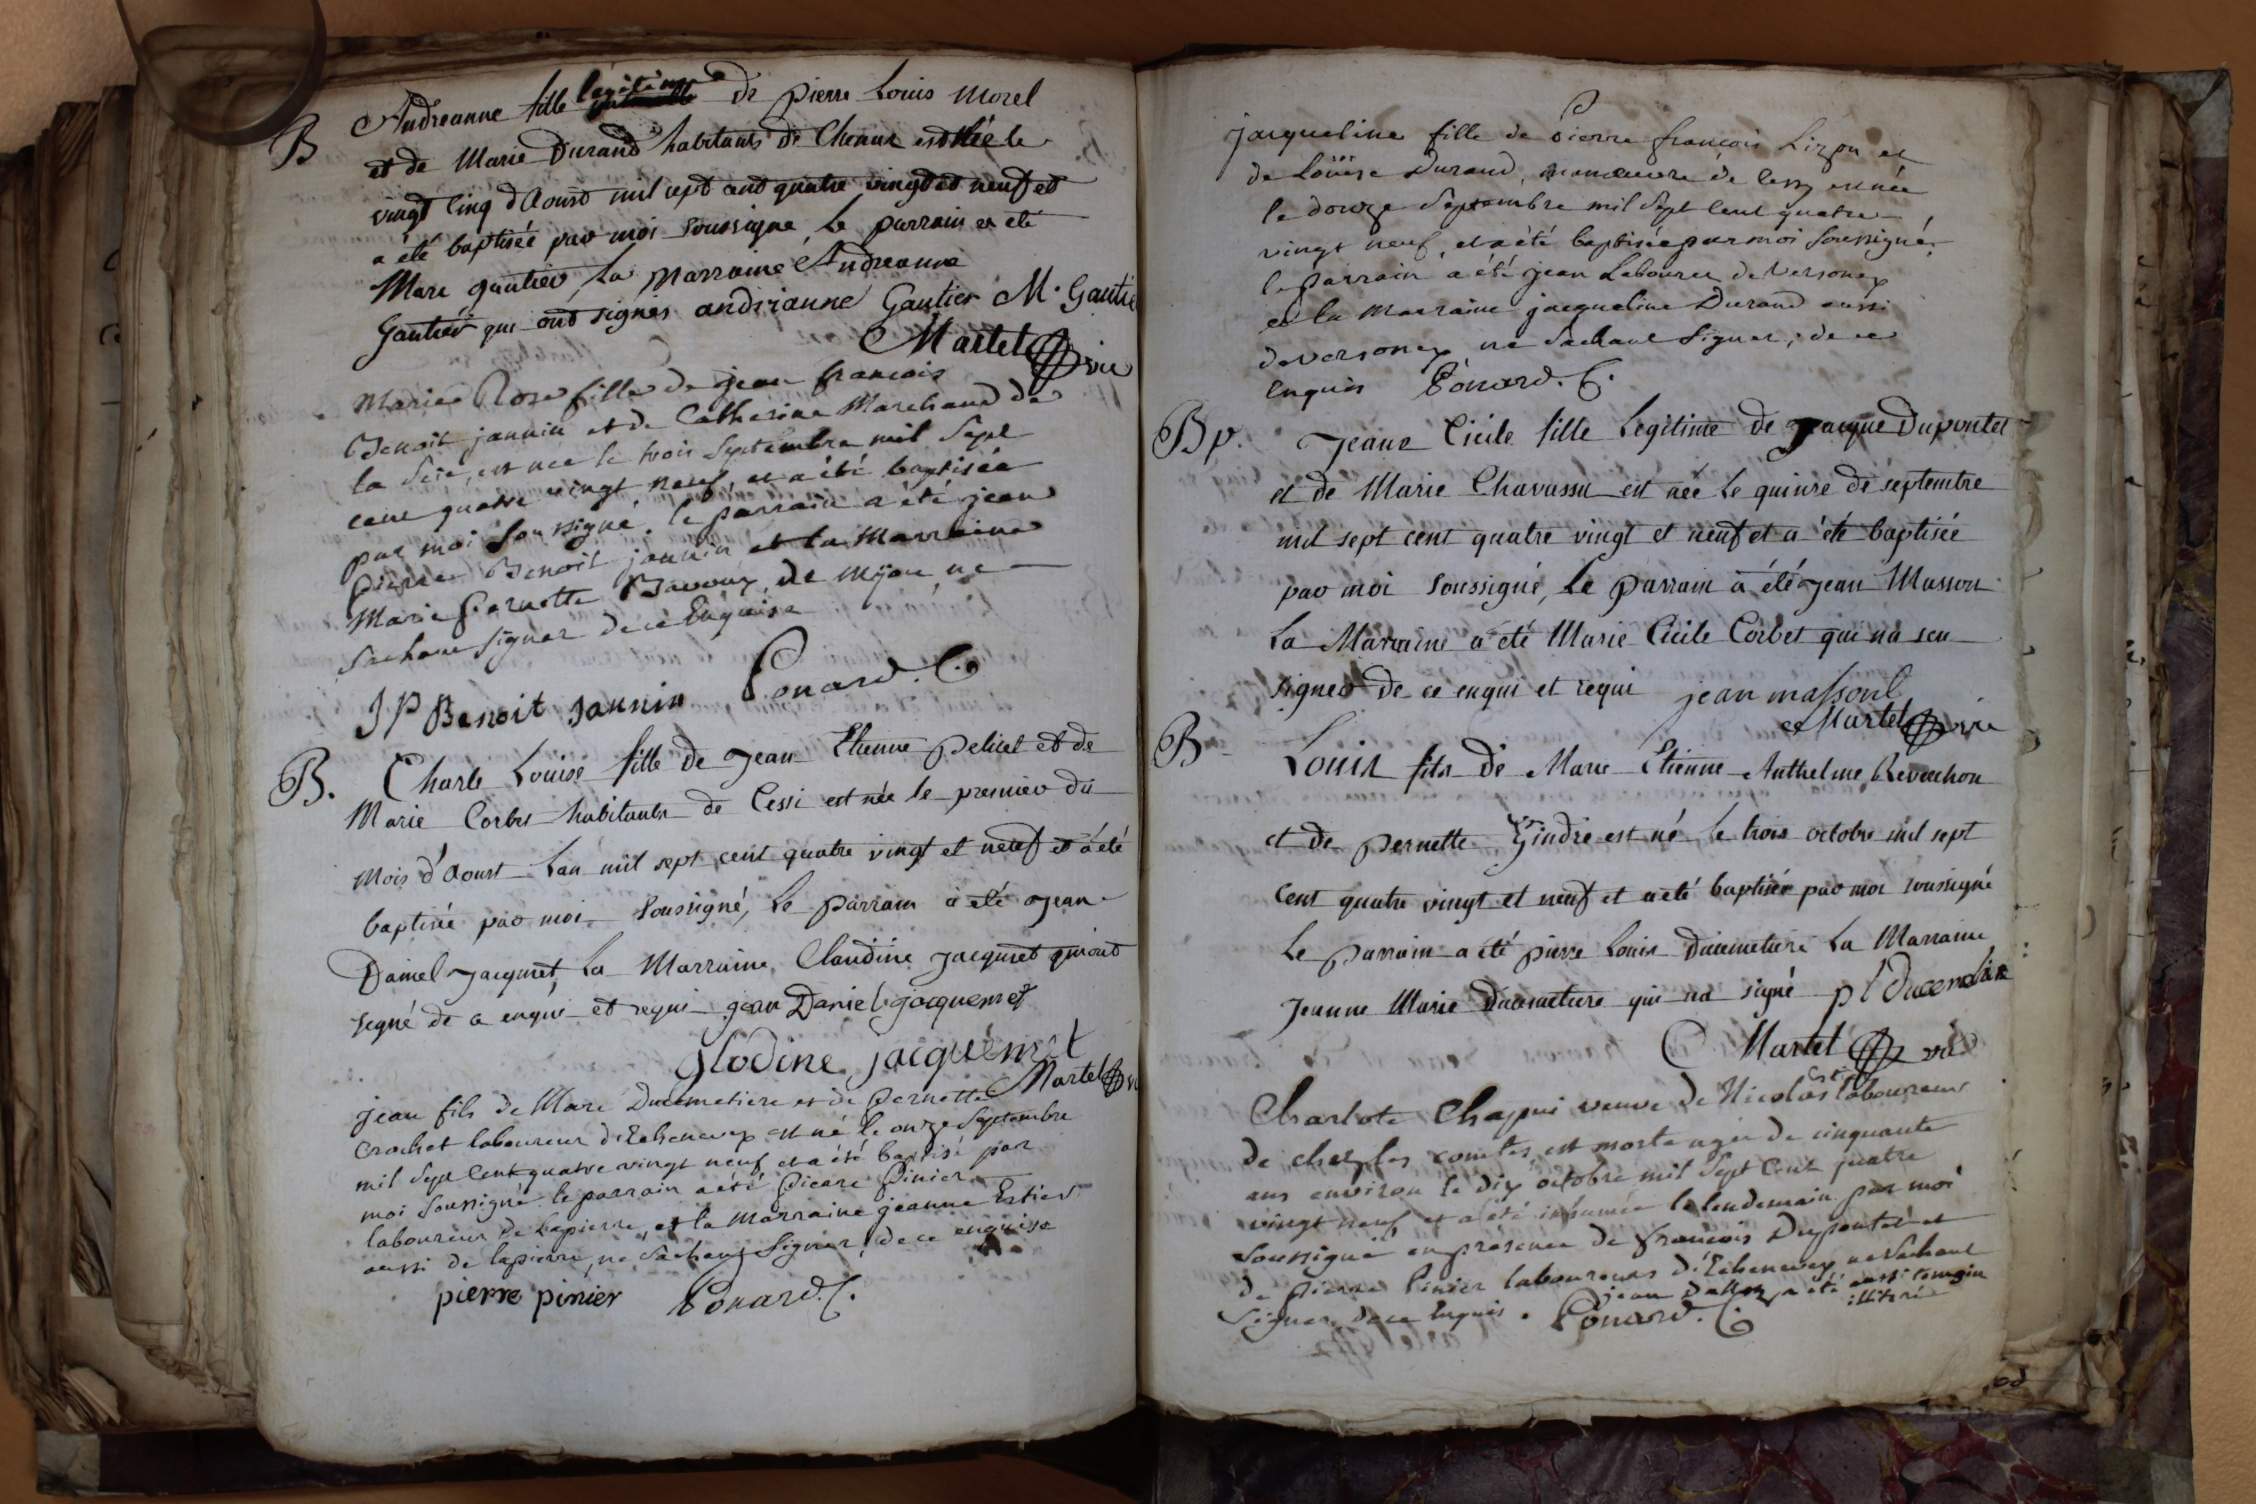 B
Andreanne fille légitime de Pierre Louis Morel
et de Marie Durand habitants de Chenaz est née le
vingt cinq d'Aoust mil sept cent quatre vingt et neuf et
a été baptisée par moi soussigné, Le parrain a été
Marc Gautier, La Marraine Andreanne
Gautier qui ont signés andrianne Gautier M. Gautie
Martel vic
Marie Rose fille de jean françois
Benoit jannin et de Catherine Marchand de
la est née le trois Septembre mil Sept
cent quatre vingt neuf, et a été baptisée
par moi soussigné. le parrain a été jean
pierre Benoit jannin et la Marraine
Marie Pernette de Mijou, ne
Sachant Signer de ce Enquise
J P Benoit Jannin Ponard. C.
B. Charle Louise fille de Jean Etienne Pelicet et de
Marie Corbet habitants de Cessi est née le premier du
Mois d'Aoust L'an mil sept cent quatre vingt et neuf et a été
baptisée par moi Soussigné, Le Parrain a été Jean
Daniel Jacquet, La Marraine Claudine Jacquet qui ont
signé de ce enquis et requi jean Daniel jacquemet
Glodine jacquemet
Martel
jean fils de Marc Ducimetiere et de Pernette
Crochet laboureur d'Echenevex est né le onze Septembre
mil Sept Cent quatre vingt neuf et a été baptisé par
moi Soussigné. le parrain a été Pierre Pinier
laboureur de Lapierre, et la Marraine jeanne Estier
aussi de lapierre, ne Sachant Signer, de ce enquise
pierre pinier Ponard. C.
jacqueline fille de Pierre françois Lizon et
de Loüise Durand, manoeuvre de Cessy est née
le douze Septembre mil Sept Cent quatre
vingt neuf, et a été baptisée par moi Soussigné,
le parrain a été jean Labourer de Versonex
et la Marraine jacqueline Durand aussi
de versonex, ne Sachant Signer, de ce
Enquis Ponard. C.
Bp. Jeane Cicile fille Legitime de Jacque Dupontet
et de Marie Chavassu est née Le quinze de septembre
mil sept cent quatre vingt et neuf et a été baptisée
par moi soussigné, Le Parrain a été Jean Masson
La Marraine a été Marie Cicile Corbet qui na seu
signer de ce enqui et requi jean massont
Martel vic
B Louis fils de Marc Etienne Anthelme Reverchon
et de Pernette Gindre est né le trois octobre mil sept
Cent quatre vingt et neuf et a été baptisée par moi soussigné
Le Parrain a été pierre Louis Ducimetiere La Marraine
Jeanne Marie Ducimetiere qui na signé p l Ducemetiere
Martel vic
Charlote Chapui veuve de Nicolas laboureur
de chez les comtes, est morte agée de cinquante
ans environ le dix octobre mil Sept Cent quatre
vingt neuf et a été inhumée le lendemain par moi
Soussigné en présence de françois Dupontet et
de pierre Pinier laboureurs d'Echenevex ne Sachant
Signer de ce Enquis. jean a été aussi temoin
illitéré
Ponard. C.